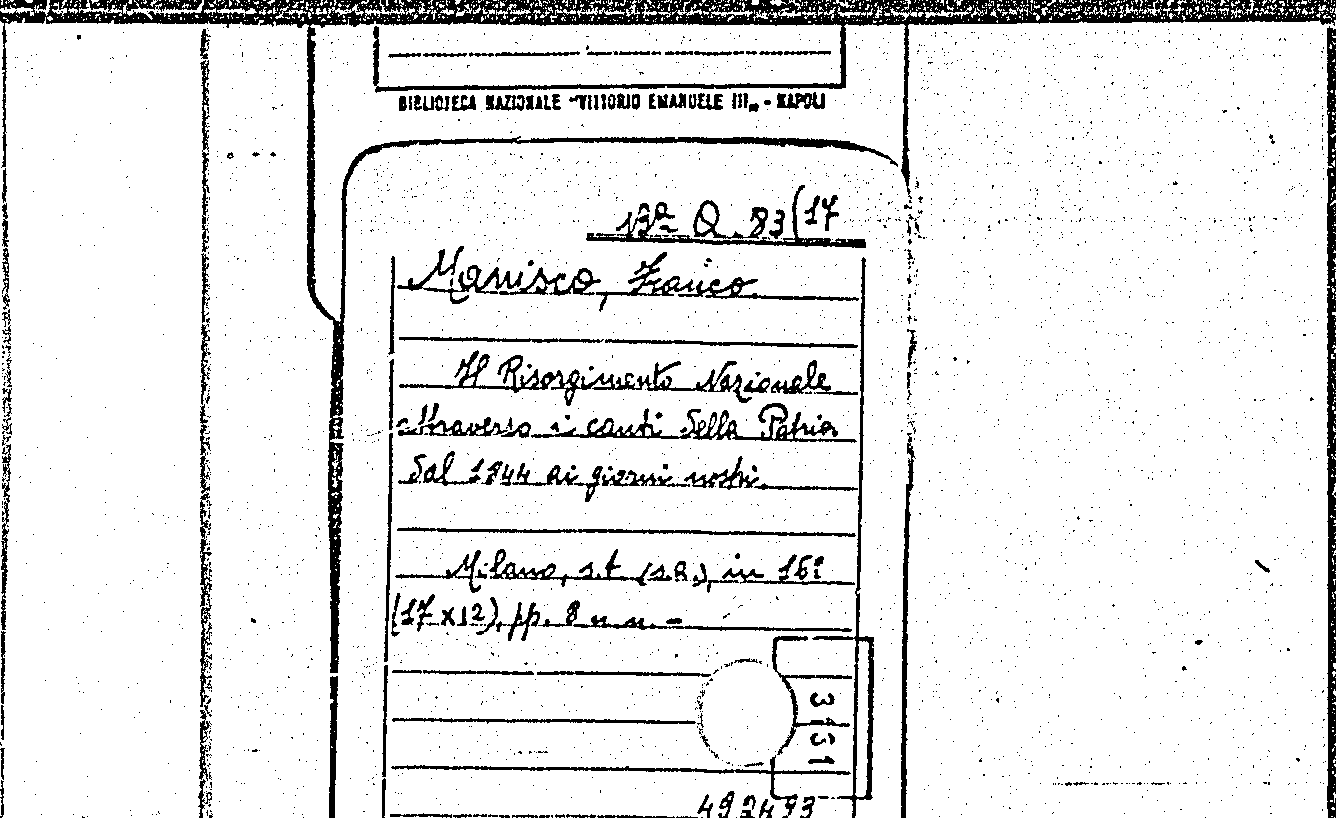 BIBLIOTECA NAZIONALE "VITTORIO EMANUELE III„ - NAPOLI
13ª Q. 83(17
Manisco, Franco.
Il Risorgimento Nazionale
attraverso i canti della Patria
dal 1844 ai giorni nostri.
Milano, s.t. (s.a.), in 16°
(17 x 12), pp. 8 n.n. -
492493